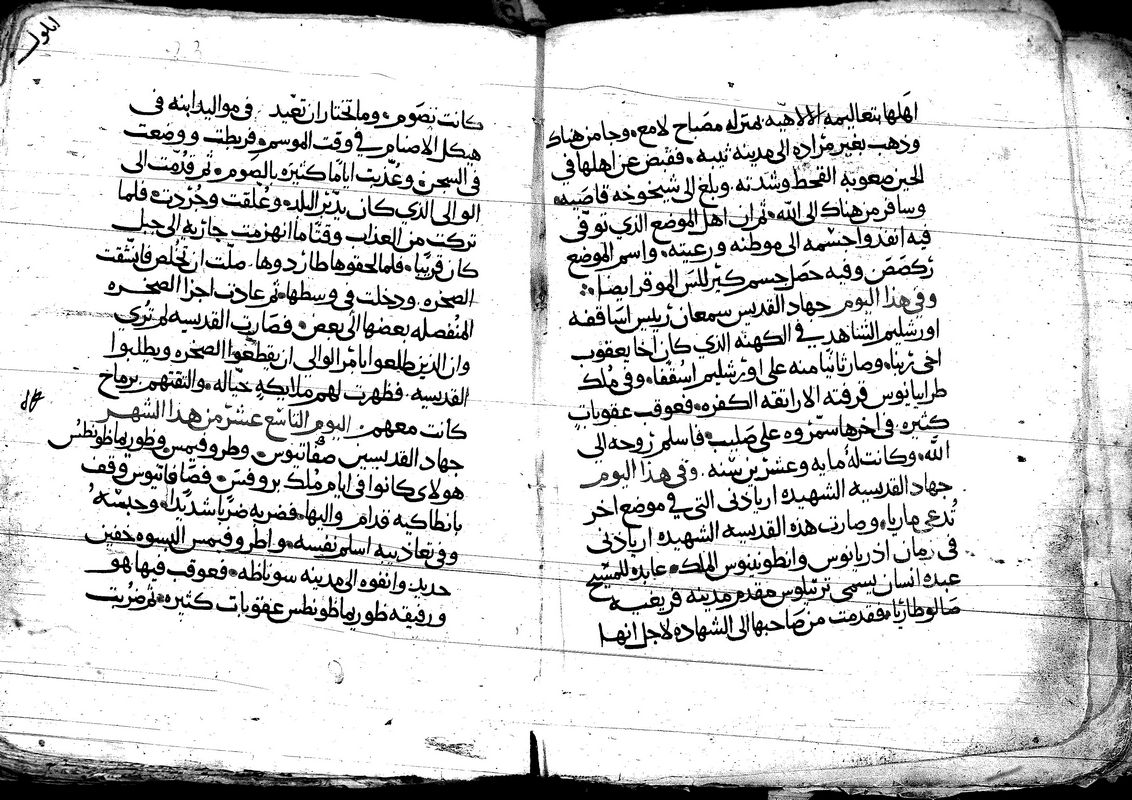 اهلها بتعاليمه الالاهيه بمنزله مصباح لامع، وجا من هناك
وذهب بغير مراده الى مدينه تدبه، فقبض عن اهلها في
الحين صعوبه القحط وشدته، وبلغ الى شيخوخه قاصيه،
وسافر من هناك الى الله، ثم ان اهل الموضع الذي توفى
فيه انفدوا جسمه الى موطنه ورعيته، واسم الموضع
ركصص وفيه حصل جسم كبير للسر الموقر ايضا
وفي هذا اليوم جهاد القديس سمعان رييس اساقفه
اورشليم الشاهد في الكهنه الذي كان اخا يعقوب
اخي ربنا، وصار ثانيا منه على اورشليم اسقفا، وفي ملك
طرايانوس قرفته الاراتقه الكفره، فعوقب عقوبات
كثيره، في اخرها سمروه على صليب، فاسلم روحه الى
الله، وكانت له مايه وعشرين سنه، وفي هذا اليوم
جهاد القديسه الشهيده ارياذني التي في موضع اخر
تدعى ماريا، وصارت هذه القديسه الشهيده ارياذني
في زمان اذريانوس وانطونينوس الملك، عابده للمسيح
عبده انسان يسمى ترتيلوس مقدم مدينه فريغيه
صالوطاريا، فقدمت من صاحبها الى الشهاده لاجل انها
ايلول
كانت تصوم، وما تختار ان تعيد في مواليد ابنه في
هيكل الاصنام في وقت الموسم، فربطت ووضعت
في السجن وعذبت اياما كثيره بالصوم، ثم قدمت الى
الوالي الذي كان يدبر البلد، وعلقت وجردت، فلما
تركت من العذاب وقتا ما انهزمت جازيه الى جبل
كان قريبا، فلما لحقوها طاردوها، صلت ان تخلص فانشقت
الصخره، ودخلت في وسطها، ثم عادت اجزا الصخره
المنفصله بعضها الى بعض، فصارت القديسه لم تري
وان الذين طلعوا بامر الوالي ان يقطعوا الصخره ويطلبوا
القديسه، فظهرت لهم ملايكه خياله، والتقتهم برماح
كانت معهم، اليوم التاسع عشر من هذا الشهر
جهاد القديسين صفاتيوس، وطروفيمس، وظوريماظونطس
هولاي كانوا في ايام ملك بروفس، فصافاتيوس وقف
بانطاكيه قدام واليها، فضربه ضربا شديدا، وحبسه
وفي تعاذيبه اسلم نفسه، واطروفيمس البسوه خفين
حديد، وانفوه الى مدينه سوناطه، فعوقب فيها هو
ورفيقه ظوريماظونطس عقوبات كثيره، ثم ضربت